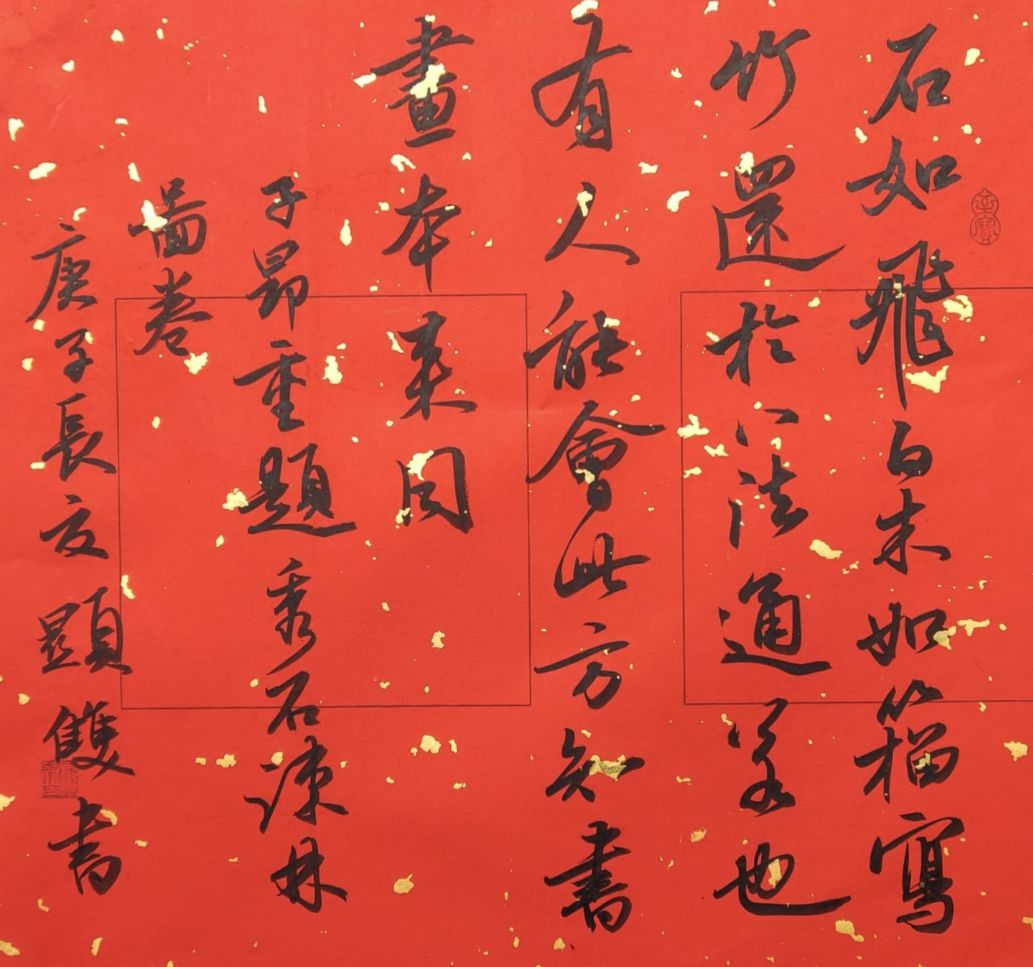 石如飛白木如籀寫
竹還於八法通若也
有人能會此方知書
畫本來同
子昂重題秀石疎林
圖卷
庚子長夏顯雙書